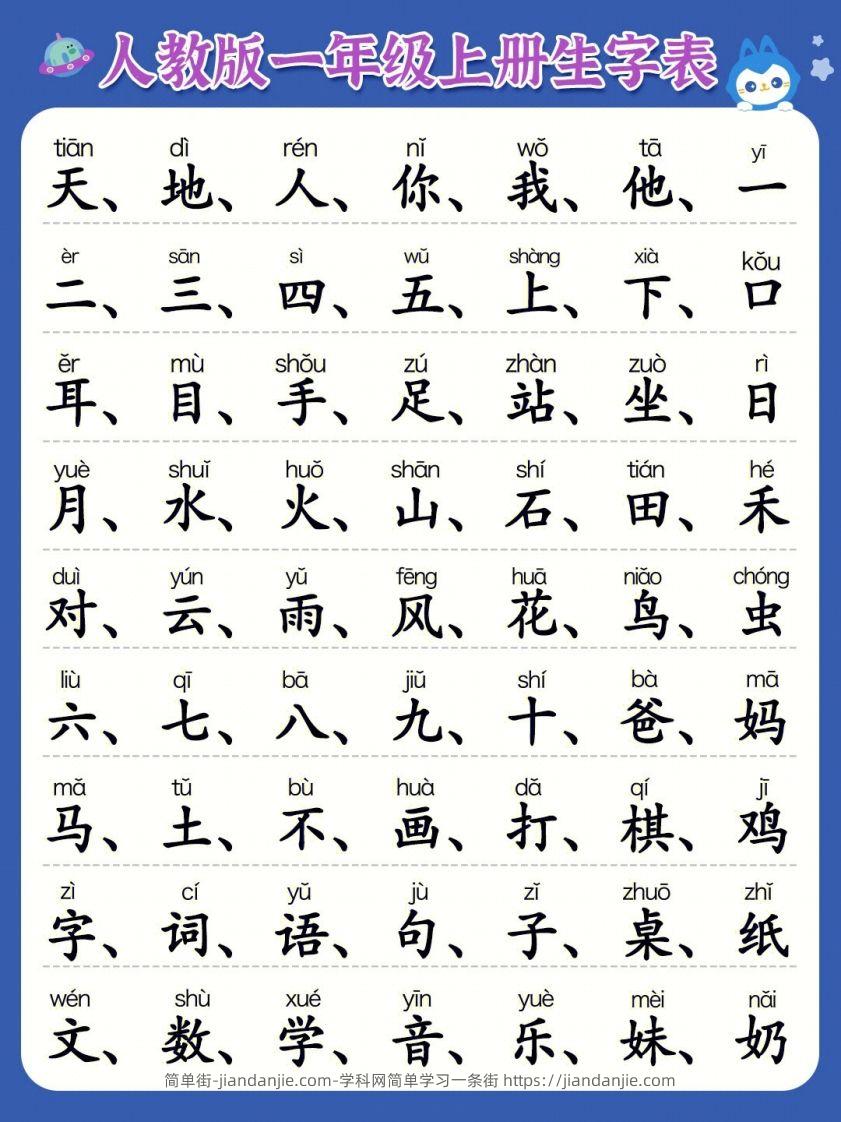 人教版一年级上册生字表
tiān dì rén nǐ wǒ tā yī
天、地、人、你、我、他、一
èr sān sì wǔ shàng xià kǒu
二、三、四、五、上、下、口
ěr mù shǒu zú zhàn zuò rì
耳、目、手、足、站、坐、日
yuè shuǐ huǒ shān shí tián hé
月、水、火、山、石、田、禾
duì yún yǔ fēng huā niǎo chóng
对、云、雨、风、花、鸟、虫
liù qī bā jiǔ shí bà mā
六、七、八、九、十、爸、妈
mǎ tǔ bù huà dǎ qí jī
马、土、不、画、打、棋、鸡
zì cí yǔ jù zǐ zhuō zhǐ
字、词、语、句、子、桌、纸
wén shù xué yīn yuè mèi nǎi
文、数、学、音、乐、妹、奶
简单街-jiandanjie.com-学科网简单学习一条街 https://jiandanjie.com